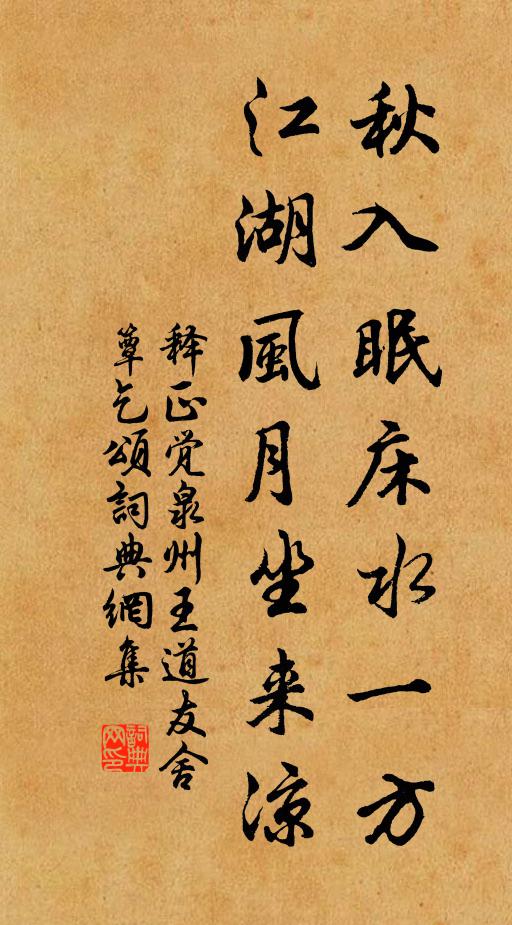 秋入眠床水一方
江湖風月坐来凉
释正覚泉州王道友舍
簟乞頌詞典網集
詞典
网印